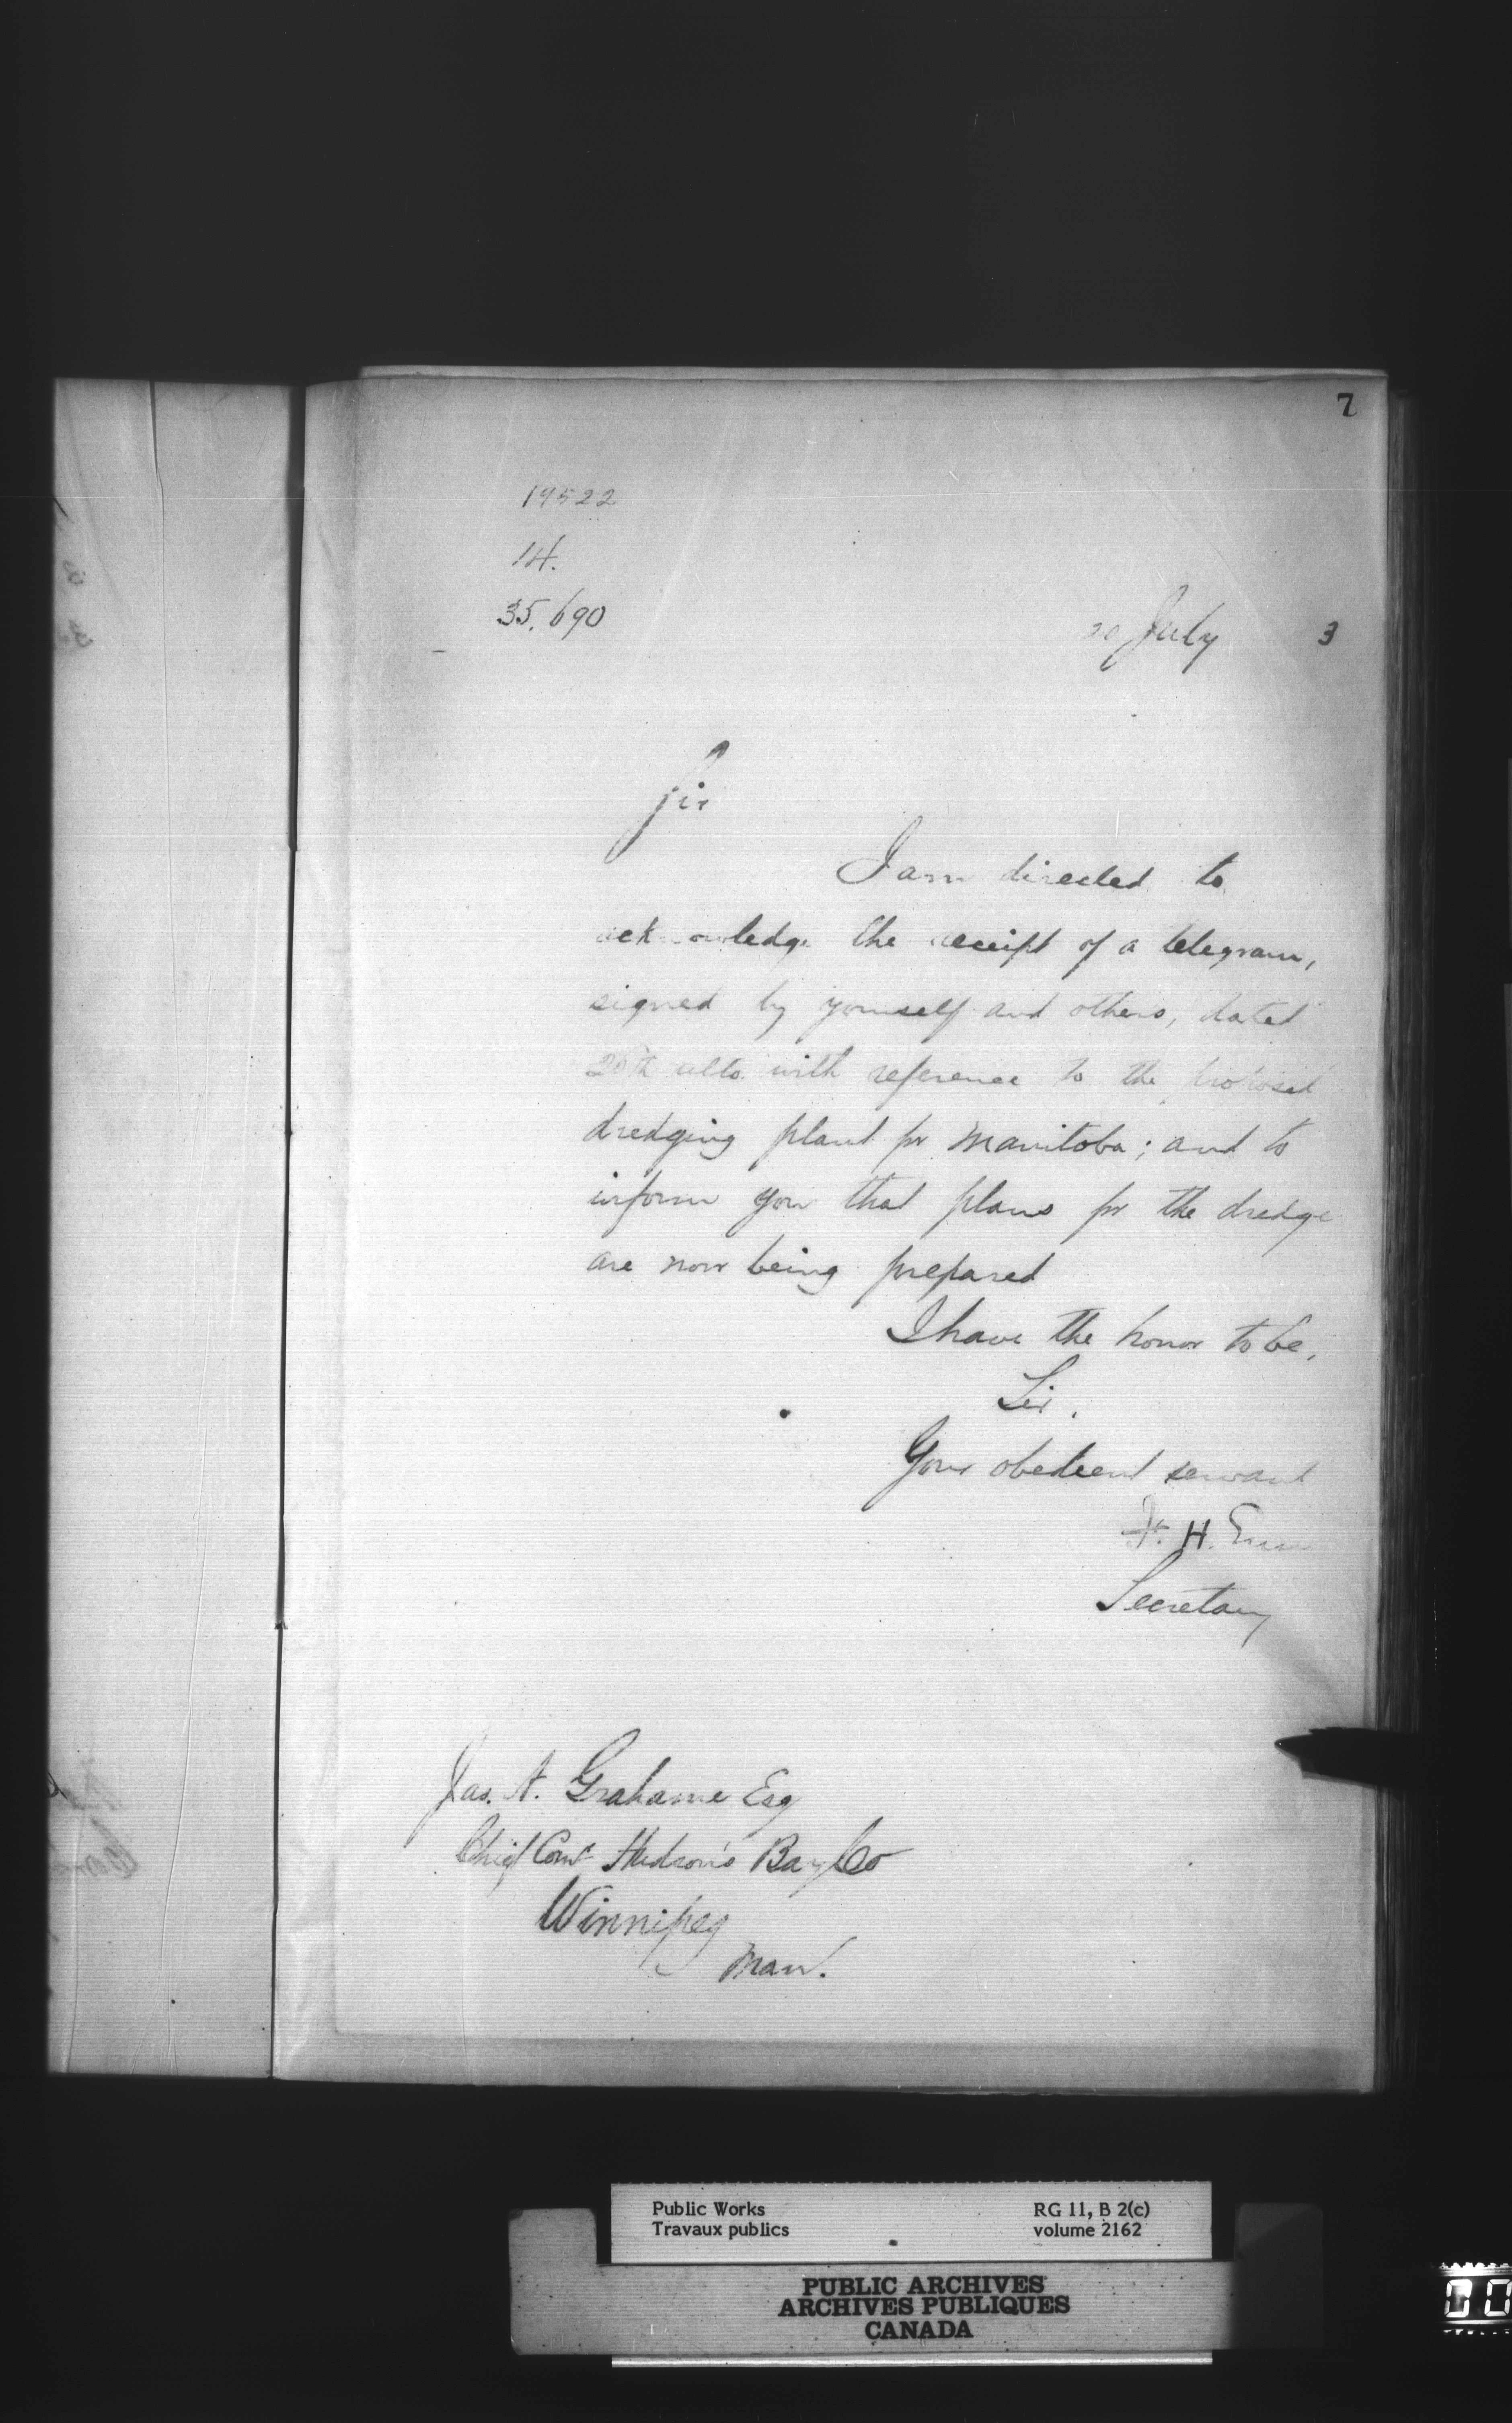 7
19522
14.
35.690
20 July 3
Sir
I am directed to
acknowledge the receipt of a telegram,
signed by yourself and others, dated
ulto. with reference to the proposed
dredging plant for Manitoba; and to
inform you that plans for the dredge
are now being prepared
I have the honor to be,
Sir,
Your obedient servant
F. H. Ennis
Secretary
Jas. A. Grahame Esq
Chief Comr Hudson's Bay Co
Winnipeg
Man.
Public Works RG 11, B 2(c)
Travaux publics volume 2162
PUBLIC ARCHIVES
ARCHIVES PUBLIQUES
CANADA
00